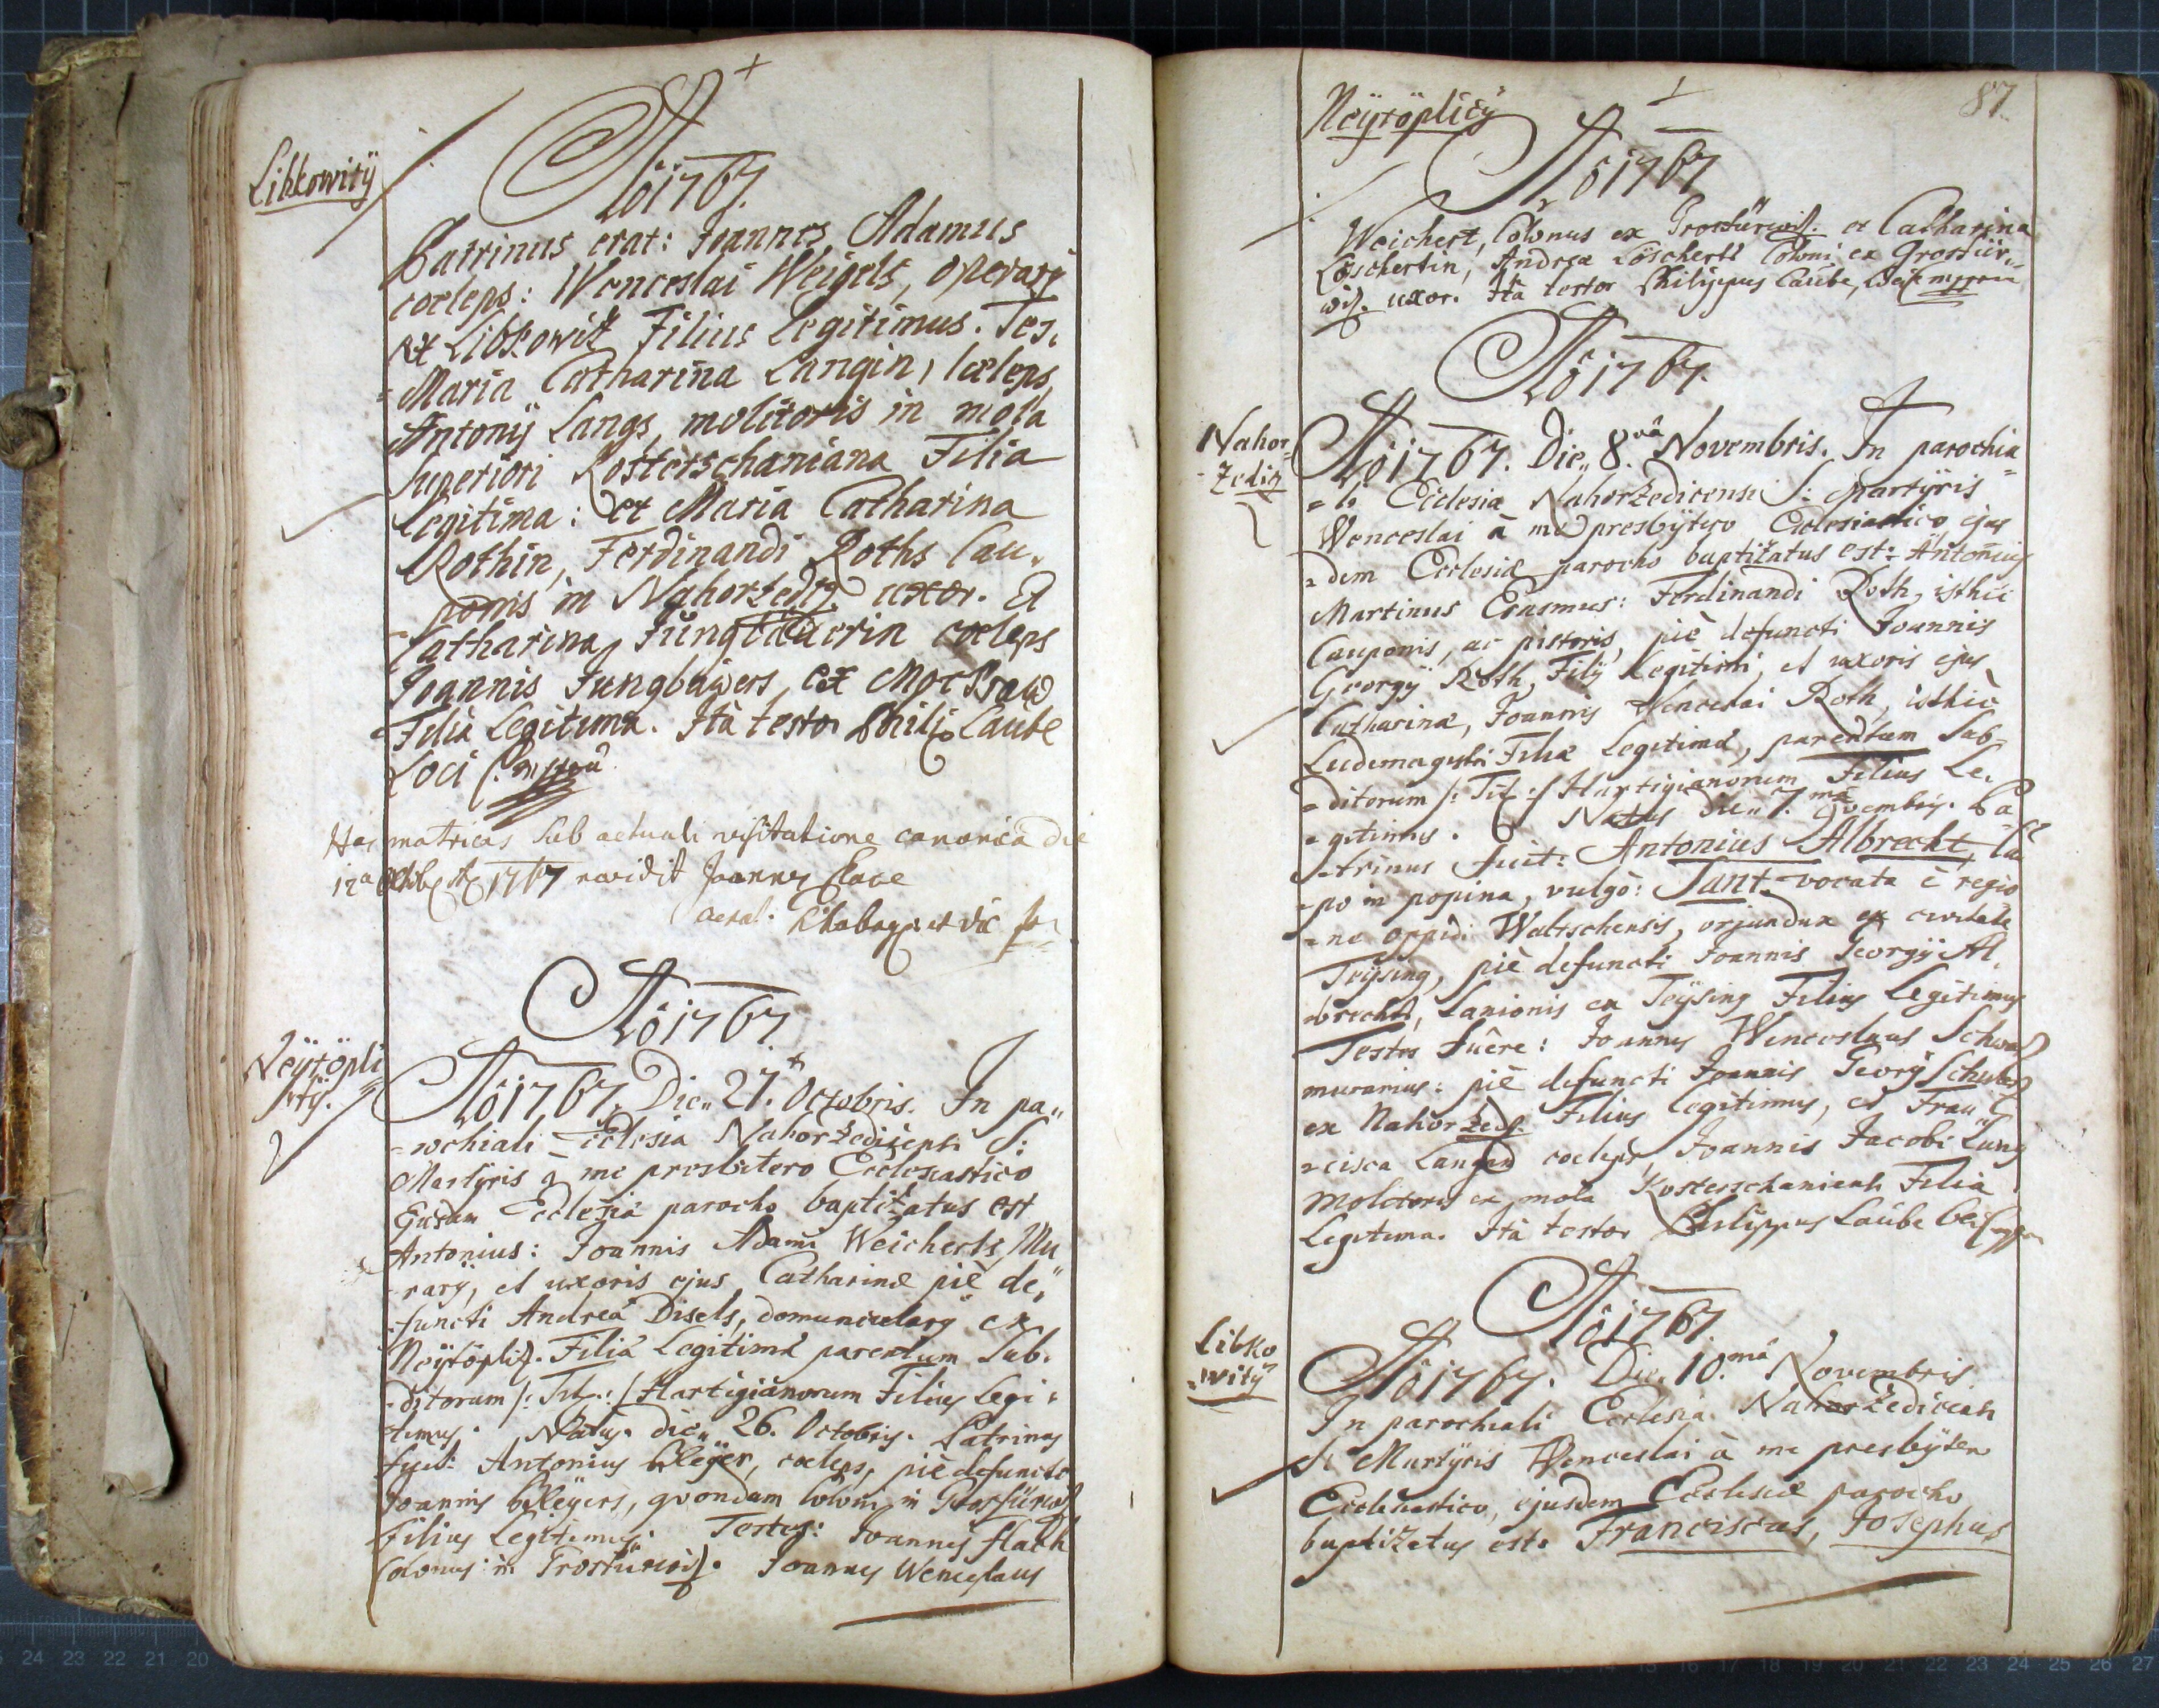 Libkowitz
Aõ 1767.
Patrinus erat: Joannes Adamus
coeleps: Wenceslai Weigels, operarÿ
ex Libkowitz Filius Legitimus. Tes,
=Maria Catharina Langin, Coeleps,
Antonÿ Langs, molitoris in mola
superiori Kosterschaniana Filia
Legitima: et Maria Catharina
Rothin, Ferdinandi Roths Cau,
ponis in Nahorzeditz uxor. et
Catharina Jungbauerin coeleps
Joannis Jungbaüers, ex
Filia Legitima. Ita testor Philip Laube
Loci
Has matricas sub actuali visitatione canonica die
12a 1767 revidit Joannes
Aõ 1767
Neÿtöpli
tz.
Aõ 1767. Die„ 27. Octobris. In pa„
=rochiali Ecclesia Nahorzedicensi S:
Martÿris a me presbitero Ecclesiastico
Ejusdem Ecclesiæ parocho baptizatus est
Antonius: Joannis Adami Weicherts, Mu
rarÿ, et uxoris ejus Catharinæ piè de„
functi Andreæ Disels, domuncularÿ ex
Neÿtöplitz. Filiæ Legitimæ parentum Sub,
ditorum /: Tit: :/ Hartigianorum Filius Legi,
timus. Natus die„ 26. Octobris. Patrinus
fuit: Antonius Pleÿer, coeleps, piè defuncti
Joannis Pleÿers, quondam Coloni in
Filius Legitimus. Testes: Joannes Flach
Colonus in Joannes Wenceslaus
87
Neÿtöplitz
Aõ 1767
Weichert, Colonus ex et Catharina
Löschertin, Andreæ Löscherts Coloni ex Grosfür„
witz. uxor. Ita testor Philippus Laube,
Aõ 1767.
Nahor=
zeditz
Aõ 1767. Die„ 8.va Novembris. In parochia=
=li Ecclesia Nahorzedicensi S: Martÿris
Wenceslai à me presbÿtero Ecclesiastico, ejus
=dem Ecclesiæ parocho baptizatus est: Antonius
Martinus Erasmus: Ferdinandi Roth, isthic
Cauponis, ac pistoris, piè defuncti Joannis
Georgÿ Roth, Filÿ Legitimi, et uxoris ejus
Catharinæ, Joannis Wenceslai Roth, isthic
Ludimagistri Filiæ Legitimæ, parentum Sub=
=ditorum /: Tit: :/ Hartigianorum Filius Le,
=gitimus. Natus die„ 7.ma Novembris. Pa=
=trinus fuit: Antonius Albrecht, Cau
=po in popina, vulgò: Tant. vocata è regio
=ne oppidi Waltschensis, orjundus ex civitate
Teÿsing, piè defuncti Joannis Georgÿ Al,
brecht, Lanionis ex Teÿsing Filius Legitimus
Testes fuêre: Joannes Wenceslaus
murarius: piè defuncti Joannis Georgÿ
ex Nahorzed. Filius legitimus, et Fran
=cisca Langin coeleps, Joannis Jacobi Lang
Molitoris ex mola Kosterschaniensi Filia
Legitima. Ita testor Philippus Laube
Aõ 1767
Libko
=witz
Aõ 1767. Die„ 10.mâ Novembris
In parochiali Ecclesia Nahorzedicensi
S. Martÿris Wenceslai à me presbÿtero
Ecclesiastico, ejusdem Ecclesiæ parocho
baptizatus est: Franciscus, Josephus